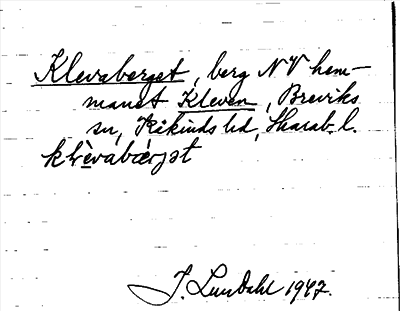 Klevaberget, berg NV hem-
manet Kleven, Breviks
sn, Kåkinds hd, Skarab. l.
klèvabær̀jət
J. Lundahl 1947.